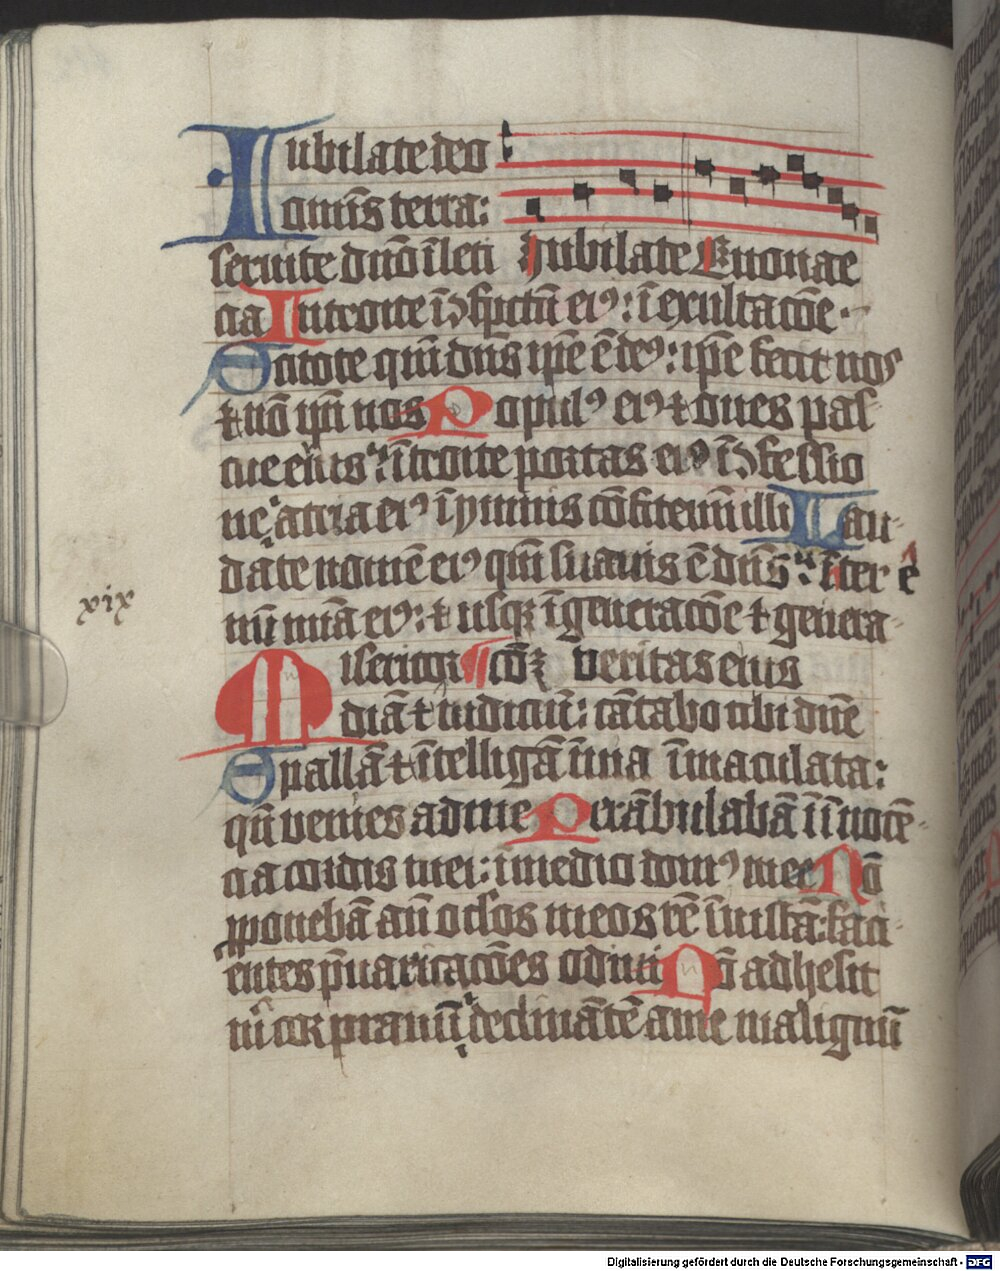 Iubilate deo
om̄is terra:
seruite dn̄o ī leti Iubilate Euouae
cia Introite ī ↄspc̄tu eiꝰ: ī exultac̄oe.
Scitote qm̄ dn̄s ip̄e ē deꝰ: ip̄e fecit nos
⁊ nō ip̄i nos Populꝰ eiꝰ ⁊ oues pas
cue eius: ītroite portas eiꝰ ī ↄfessio
ne atria eiꝰ ī ymnis cōfitemī illi Lau
date nomē eiꝰ qm̄ suauis ē dn̄s: ī eter
nū mīa eiꝰ: ⁊ usqꝫ ī generac̄oe ⁊ genera
xix
Misericor c̄oꝫ veritas eius
diā ⁊ iudiciū: cātabo tibi dn̄e
Spallā ⁊ ītelligā ī uia īmaculata:
qn̄ venies ad me Perābulabā ī īnocē
cia cordis mei: ī medio domꝰ mee Nō
ꝓponebā an̄ oc̄los meos rē īiustā: faci
entes p̄uaricac̄oes odiui Nō adhesit
m̄ cor prauū declinātē a me malignū
Digitalisierung gefördert durch die Deutsche Forschungsgemeinschaft - DFG